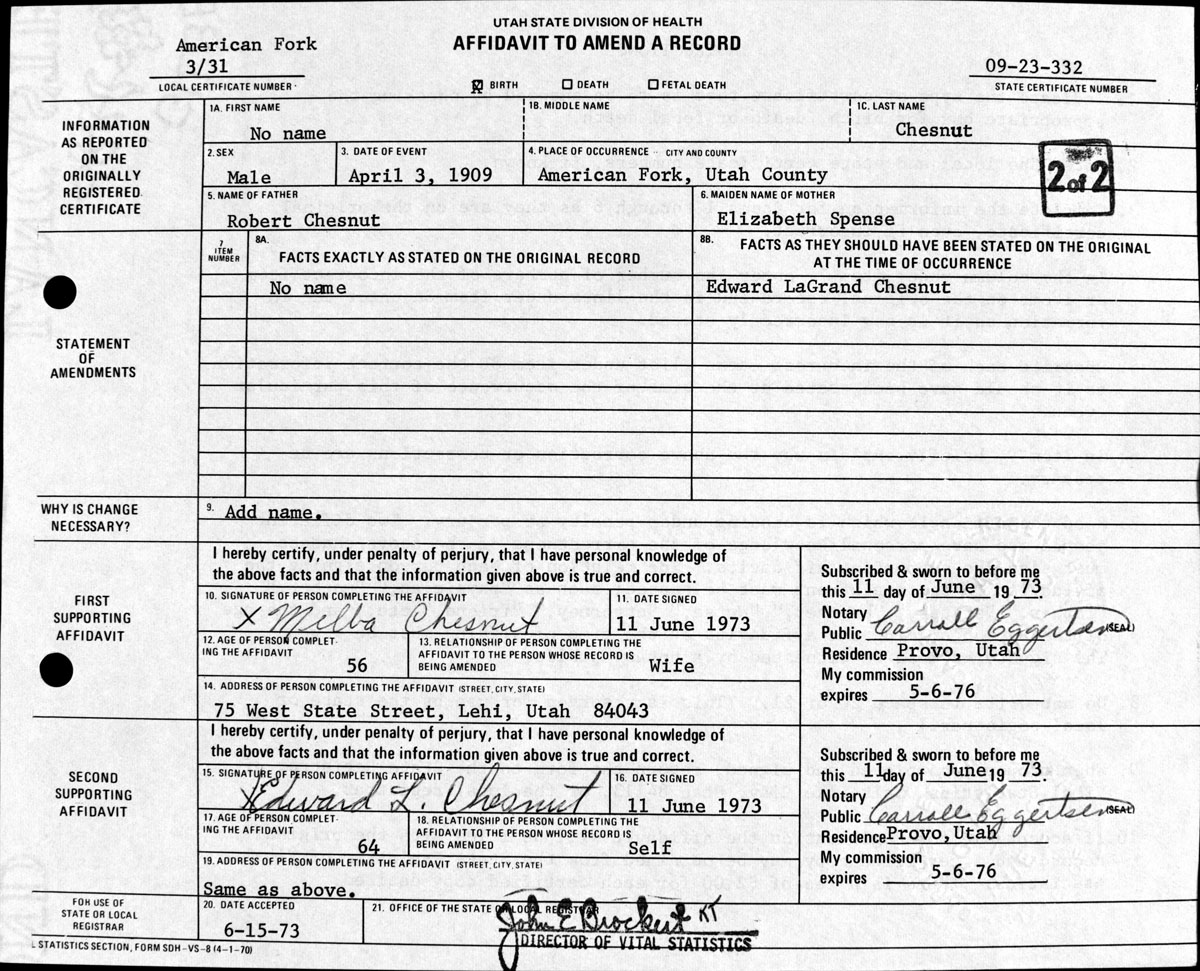 UTAH STATE DIVISION OF HEALTH
AFFIDAVIT TO AMEND A RECORD
American Fork
3/31
LOCAL CERTIFICATE NUMBER
X BIRTH DEATH FETAL DEATH
09-23-332
STATE CERTIFICATE NUMBER
INFORMATION AS REPORTED ON THE ORIGINALLY REGISTERED CERTIFICATE
1A. FIRST NAME 1B. MIDDLE NAME 1C. LAST NAME
No name Chesnut
2. SEX 3. DATE OF EVENT 4. PLACE OF OCCURRENCE - CITY AND COUNTY
Male April 3, 1909 American Fork, Utah County
2 of 2
5. NAME OF FATHER 6. MAIDEN NAME OF MOTHER
Robert Chesnut Elizabeth Spense
STATEMENT OF AMENDMENTS
7 ITEM NUMBER
8A. FACTS EXACTLY AS STATED ON THE ORIGINAL RECORD
8B. FACTS AS THEY SHOULD HAVE BEEN STATED ON THE ORIGINAL AT THE TIME OF OCCURRENCE
No name Edward LaGrand Chesnut
WHY IS CHANGE NECESSARY?
9. Add name.
FIRST SUPPORTING AFFIDAVIT
I hereby certify, under penalty of perjury, that I have personal knowledge of
the above facts and that the information given above is true and correct.
10. SIGNATURE OF PERSON COMPLETING THE AFFIDAVIT 11. DATE SIGNED
X Melba Chesnut 11 June 1973
12. AGE OF PERSON COMPLETING THE AFFIDAVIT 56
13. RELATIONSHIP OF PERSON COMPLETING THE AFFIDAVIT TO THE PERSON WHOSE RECORD IS BEING AMENDED Wife
14. ADDRESS OF PERSON COMPLETING THE AFFIDAVIT (STREET, CITY, STATE)
75 West State Street, Lehi, Utah 84043
Subscribed & sworn to before me
this 11 day of June 19 73
Notary
Public Carrall Eggertsen (SEAL)
Residence Provo, Utah
My commission
expires 5-6-76
SECOND SUPPORTING AFFIDAVIT
I hereby certify, under penalty of perjury, that I have personal knowledge of
the above facts and that the information given above is true and correct.
15. SIGNATURE OF PERSON COMPLETING AFFIDAVIT 16. DATE SIGNED
X Edward L. Chesnut 11 June 1973
17. AGE OF PERSON COMPLETING THE AFFIDAVIT 64
18. RELATIONSHIP OF PERSON COMPLETING THE AFFIDAVIT TO THE PERSON WHOSE RECORD IS BEING AMENDED Self
19. ADDRESS OF PERSON COMPLETING THE AFFIDAVIT (STREET, CITY, STATE)
Same as above.
Subscribed & sworn to before me
this 11 day of June 19 73.
Notary
Public Carrall Eggertsen (SEAL)
Residence Provo, Utah
My commission
expires 5-6-76
FOR USE OF STATE OR LOCAL REGISTRAR
20. DATE ACCEPTED 21. OFFICE OF THE STATE OR LOCAL REGISTRAR
6-15-73 John E Brockert KT
DIRECTOR OF VITAL STATISTICS
L STATISTICS SECTION, FORM SDH-VS-8 (4-1-70)